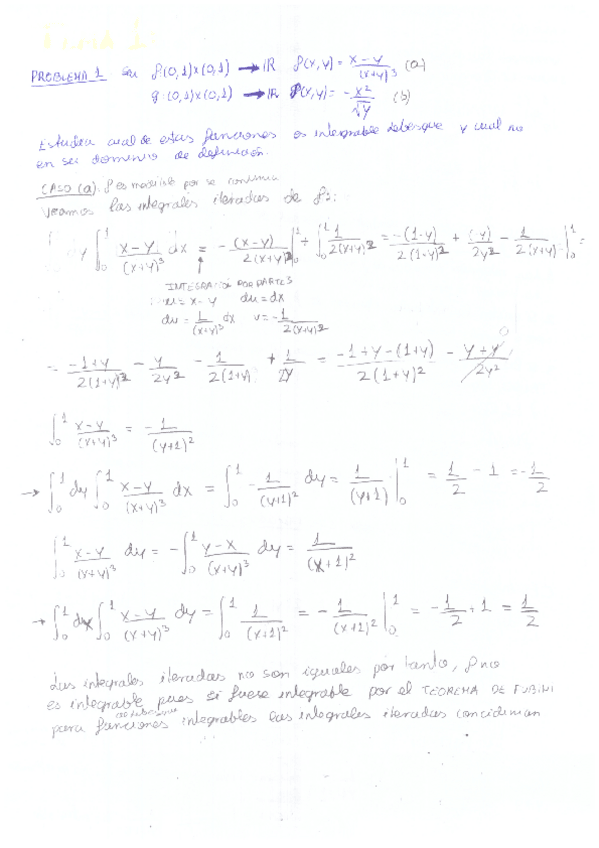 PROBLEMA 1 Sea f:(0,1)x(0,1) → IR f(x,y) = x-y / (x+y)^3 (a)
g:(0,1)x(0,1) → IR f(x,y) = - x^2 / √y (b)
Estudia cual de estas funciones es integrable Lebesgue y cual no
en su dominio de definición.
CASO (a). f es medible por se continua
Veamos las integrales iteradas de f:
dy ∫_0^1 x-y / (x+y)^3 dx = - (x-y) / 2(x+y)^2 |_0^1 + ∫_0^1 1 / 2(x+y)^2 = -(1-y) / 2(1+y)^2 + (y) / 2y^2 - 1 / 2(x+y) |_0^1 =
INTEGRACIÓN POR PARTES
u = x-y du = dx
dv = 1 / (x+y)^3 dx v = -1 / 2(x+y)^2
= -1+y / 2(1+y)^2 - y / 2y^2 - 1 / 2(1+y) + 1 / 2y = -1+y-(1+y) / 2(1+y)^2 - y+y / 2y^2 0
∫_0^1 x-y / (x+y)^3 = - 1 / (y+1)^2
→ ∫_0^1 dy ∫_0^1 x-y / (x+y)^3 dx = ∫_0^1 - 1 / (y+1)^2 dy = 1 / (y+1) |_0^1 = 1/2 - 1 = -1/2
∫_0^1 x-y / (x+y)^3 dy = - ∫_0^1 y-x / (x+y)^3 dy = 1 / (x+1)^2
→ ∫_0^1 dx ∫_0^1 x-y / (x+y)^3 dy = ∫_0^1 1 / (x+1)^2 = - 1 / (x+1)^2 |_0^1 = -1/2 + 1 = 1/2
Las integrales iteradas no son iguales por tanto, f no
es integrable pues si fuese integrable por el TEOREMA DE FUBINI
para funciones integrables las integrales iteradas concidirian